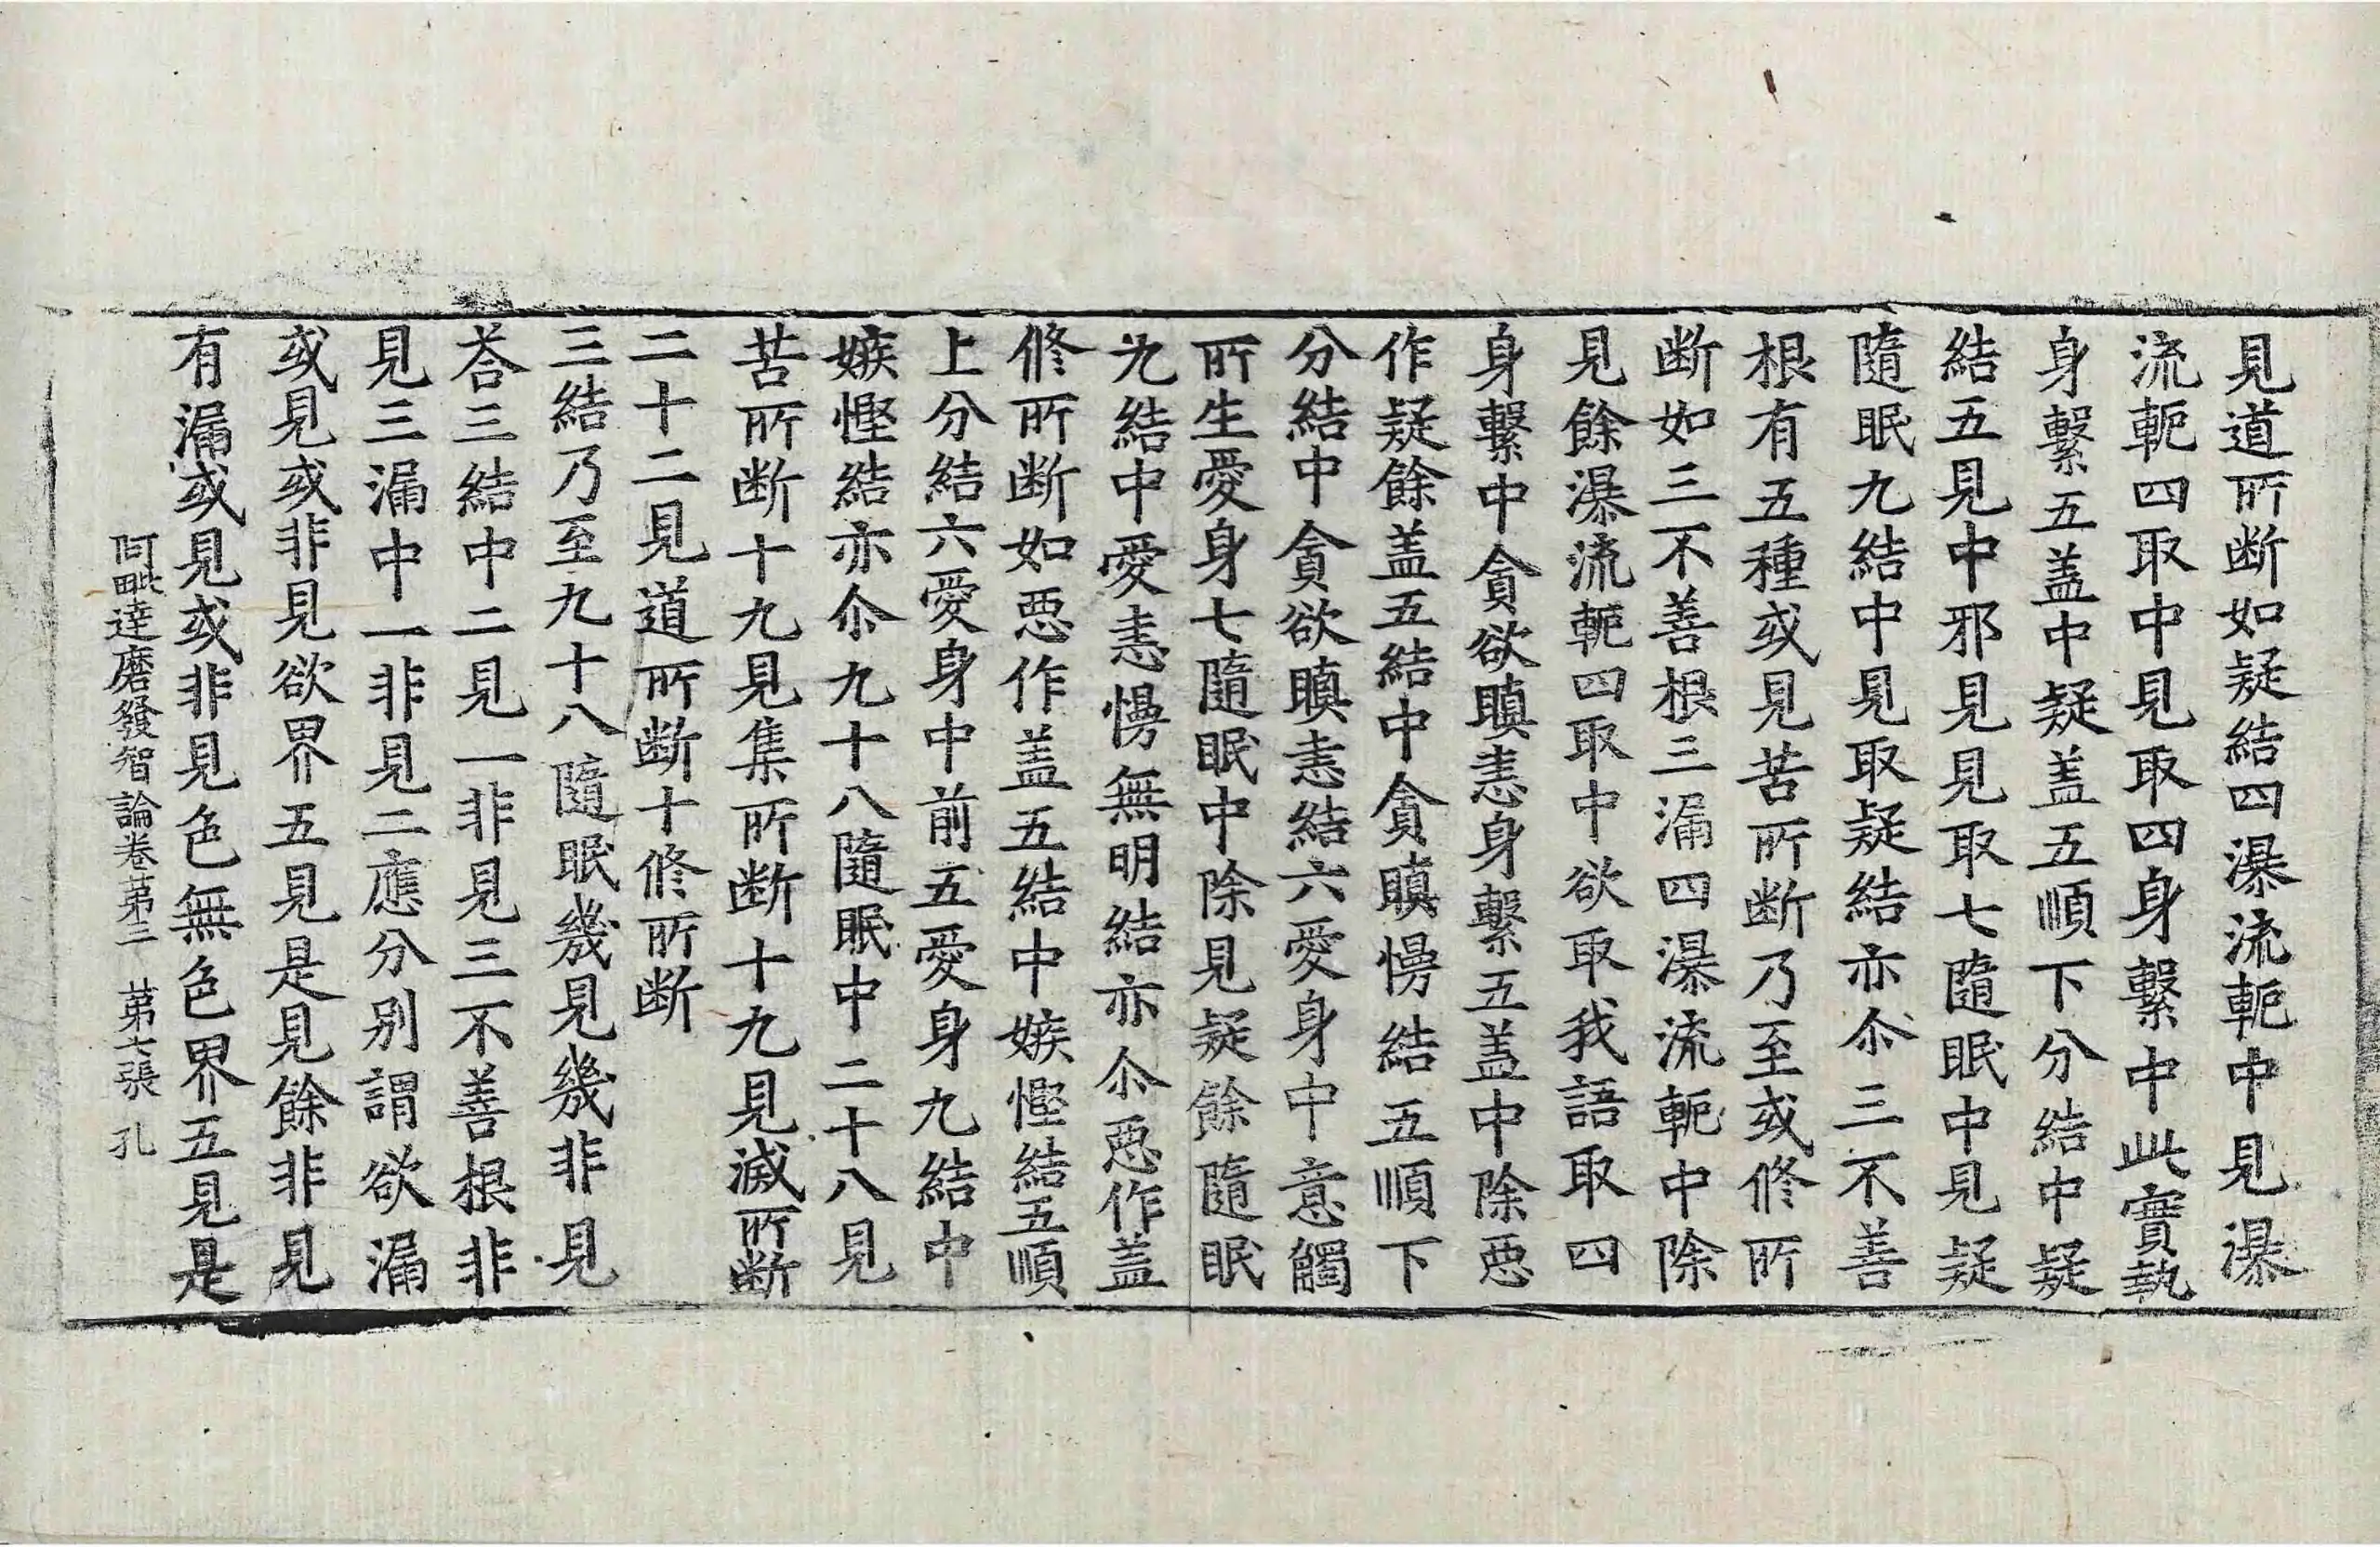 見道所断如疑結四瀑流軛中見瀑
流軛四取中見取四身繫中此實執
身繫五盖中疑盖五順下分結中疑
結五見中邪見見取七隨眠中見疑
隨眠九結中見取疑結亦尒三不善
根有五種或見苦所断乃至或修所
断如三不善根三漏四瀑流軛中除
見餘瀑流軛四取中欲取我語取四
身繫中貪欲瞋恚身繫五盖中除惡
作疑餘盖五結中貪瞋慢結五順下
分結中貪欲瞋恚結六愛身中意觸
所生愛身七隨眠中除見疑餘隨眠
九結中愛恚慢無明結亦尒惡作盖
修所断如惡作盖五結中嫉慳結五順
上分結六愛身中前五愛身九結中
嫉慳結亦尒九十八隨眠中二十八見
苦所断十九見集所断十九見滅所断
二十二見道所断十修所断
三結乃至九十八隨眠幾見幾非見
荅三結中二見一非見三不善根非
見三漏中一非見二應分别謂欲漏
或見或非見欲界五見是見餘非見
有漏或見或非見色無色界五見是
阿毗達磨發智論卷第三　第七張　孔